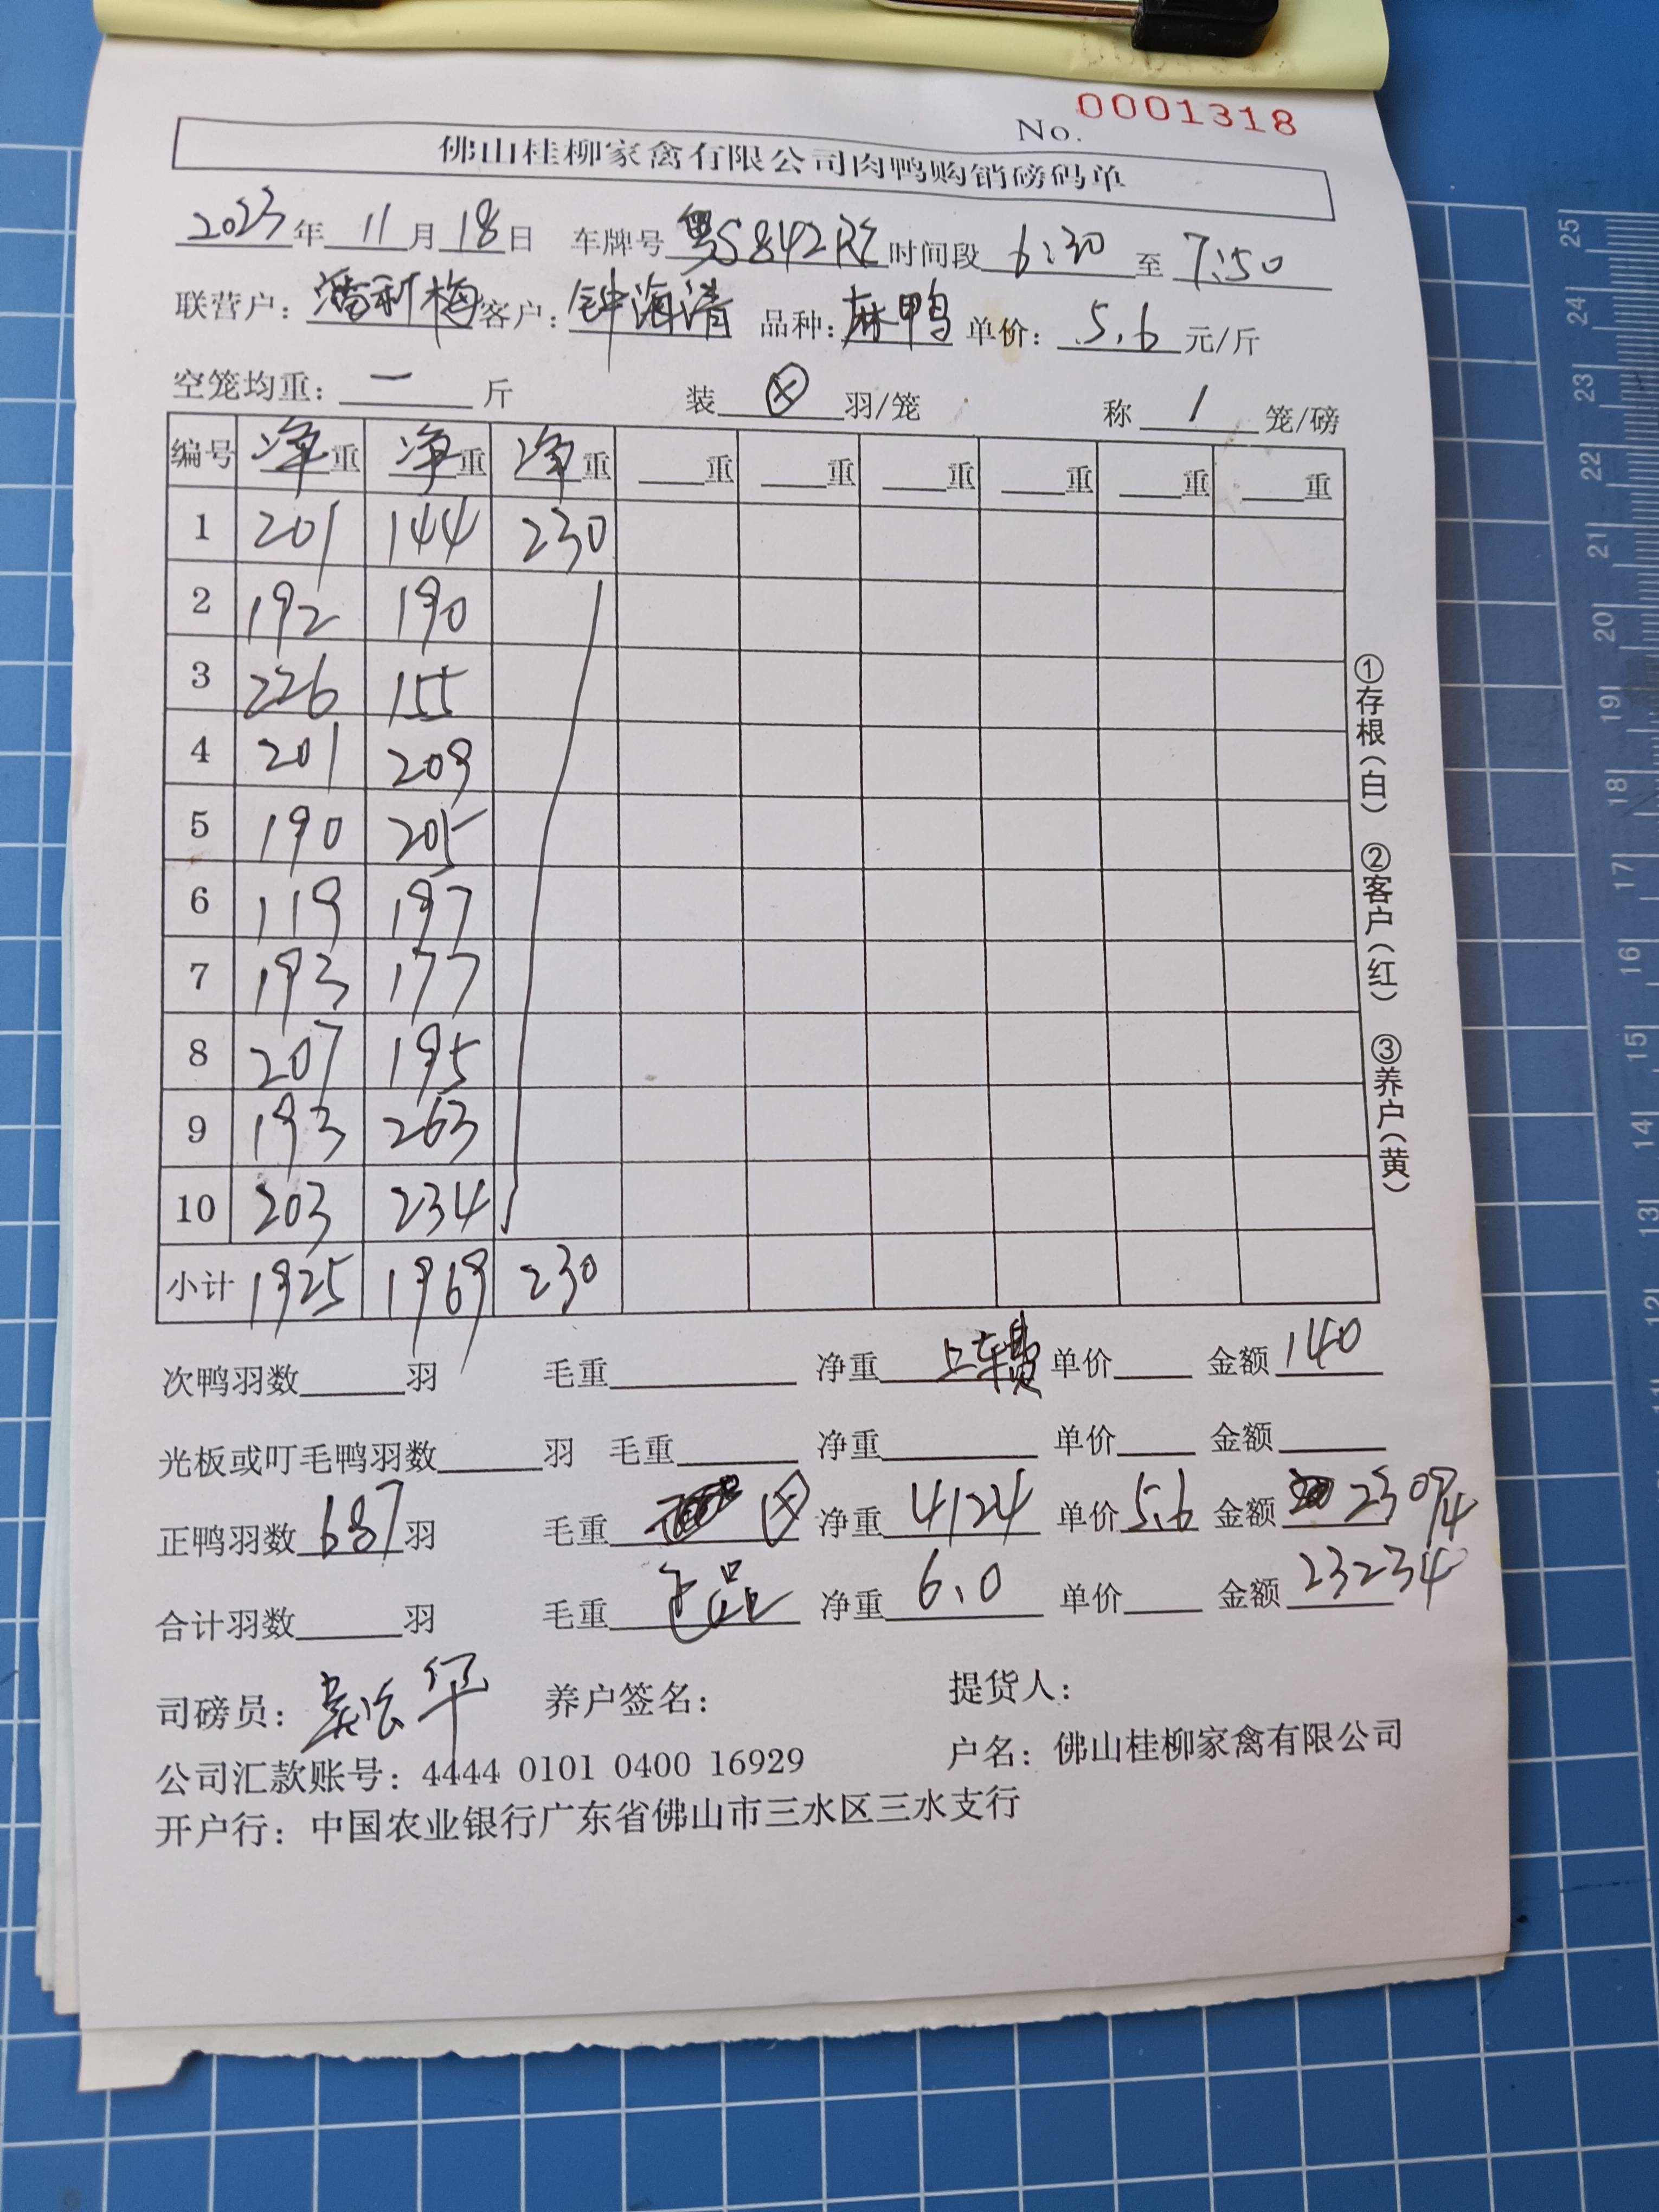 No. 0001318
佛山桂柳家禽有限公司肉鸭购销磅码单
2023年 11月 18日 车牌号 粤S842 时间段 6:30 至 7:50
联营户: 潘利梅 客户: 钟海清 品种: 麻鸭 单价: 5.6 元/斤
空笼均重: 一 斤 装 羽/笼 称 1 笼/磅
编号 净重 净重 净重 重 重 重 重 重 重
1 201 144 230
2 192 190
3 226 155
4 201 209
5 190 205
6 119 197
7 193 177
8 207 195
9 193 263
10 203 234
小计 1925 1969 230
次鸭羽数 羽 毛重 净重 上车费 单价 金额 140
光板或叮毛鸭羽数 羽 毛重 净重 单价 金额
正鸭羽数 687 羽 毛重 净重 4124 单价 5.6 金额 23094
合计羽数 羽 毛重 净重 6.0 单价 金额 23234
司磅员: 养户签名: 提货人:
公司汇款账号: 4444 0101 0400 16929 户名: 佛山桂柳家禽有限公司
开户行: 中国农业银行广东省佛山市三水区三水支行
①存根(白) ②客户(红) ③养户(黄)
25
24
23
22
21
20
19
18
17
16
15
14
13
12
11